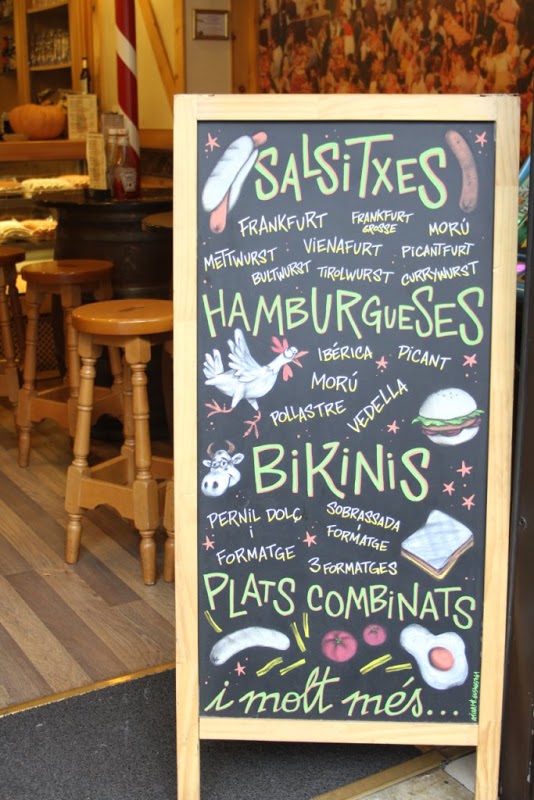 SALSITXES
FRANKFURT FRANKFURT GROSSE MORÚ
METTWURST VIENAFURT PICANTFURT
BULTWURST TIROLWURST CURRYWURST
HAMBURGUESES
IBÉRICA PICANT
MORÚ
POLLASTRE VEDELLA
BIKINIS
PERNIL DOLÇ
i
FORMATGE
SOBRASSADA
i
FORMATGE
3 FORMATGES
PLATS COMBINATS
i molt més...